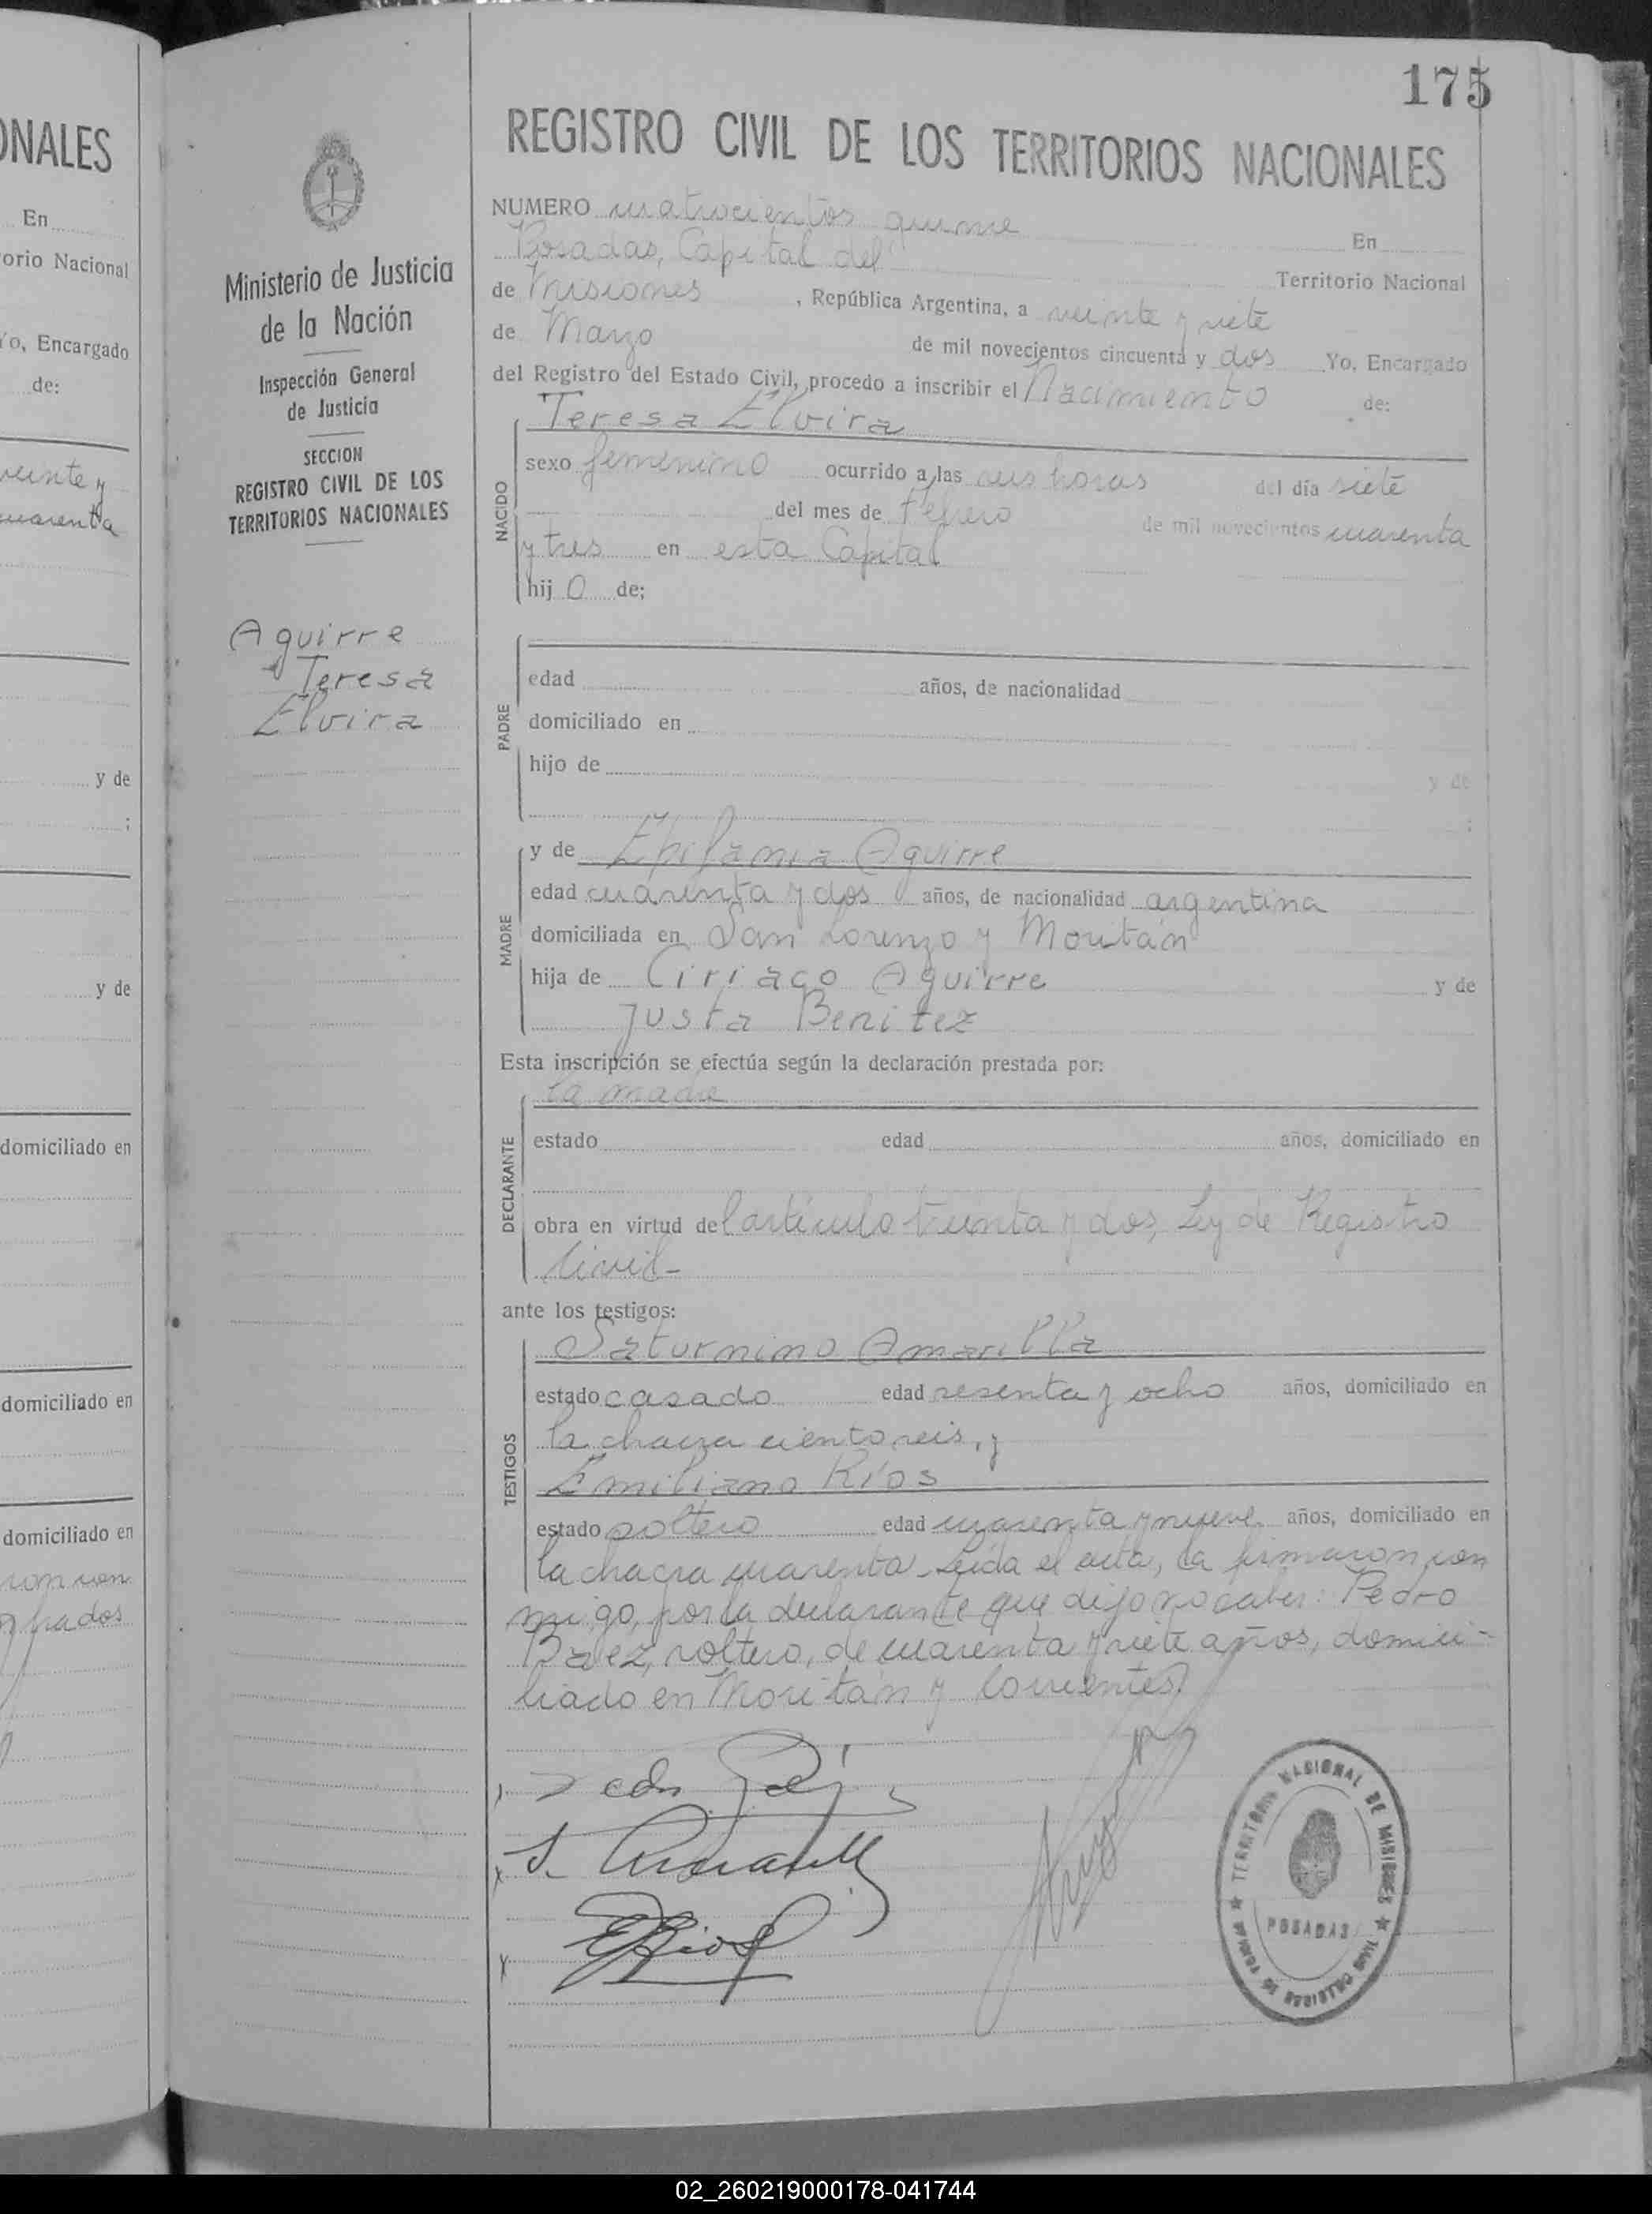 175
ONALES
En
orio Nacional
Yo, Encargado
de:
veinte y
cuarenta
y de
;
y de
domiciliado en
domiciliado en
domiciliado en
ron con
Ministerio de Justicia
de la Nación
Inspección General
de Justicia
SECCION
REGISTRO CIVIL DE LOS
TERRITORIOS NACIONALES
Aguirre
Teresa
Elvira
REGISTRO CIVIL DE LOS TERRITORIOS NACIONALES
NUMERO cuatrocientos quince En
Posadas, Capital del Territorio Nacional
de Misiones , República Argentina, a veinte y siete
de Marzo de mil novecientos cincuenta y dos Yo, Encargado
del Registro del Estado Civil, procedo a inscribir el Nacimiento de:
Teresa Elvira
NACIDO
sexo femenino ocurrido a las seis horas del día siete
del mes de Febrero de mil novecientos cuarenta
y tres en esta Capital
hij o de;
PADRE
edad años, de nacionalidad
domiciliado en
hijo de y de
;
MADRE
y de Epifania Aguirre
edad cuarenta y dos años, de nacionalidad argentina
domiciliada en San Lorenzo y Moritán
hija de Ciriaco Aguirre y de
Justa Benitez
Esta inscripción se efectúa según la declaración prestada por:
la madre
DECLARANTE
estado edad años, domiciliado en
obra en virtud del artículo treinta y dos, Ley de Registro
Civil-
ante los testigos:
TESTIGOS
Saturnino Amarilla
estado casado edad sesenta y ocho años, domiciliado en
la chacra ciento seis, y
Emiliano Ríos
estado soltero edad cuarenta y nueve años, domiciliado en
la chacra cuarenta. Leída el acta, la firmaron con
migo, por la declarante que dijo no saber: Pedro
Baez, soltero, de cuarenta y siete años, domici-
liado en Moritán y Corrientes
S. Amarilla
E Rios
TERRITORIO NACIONAL DE MISIONES
POSADAS
02_260219000178-041744